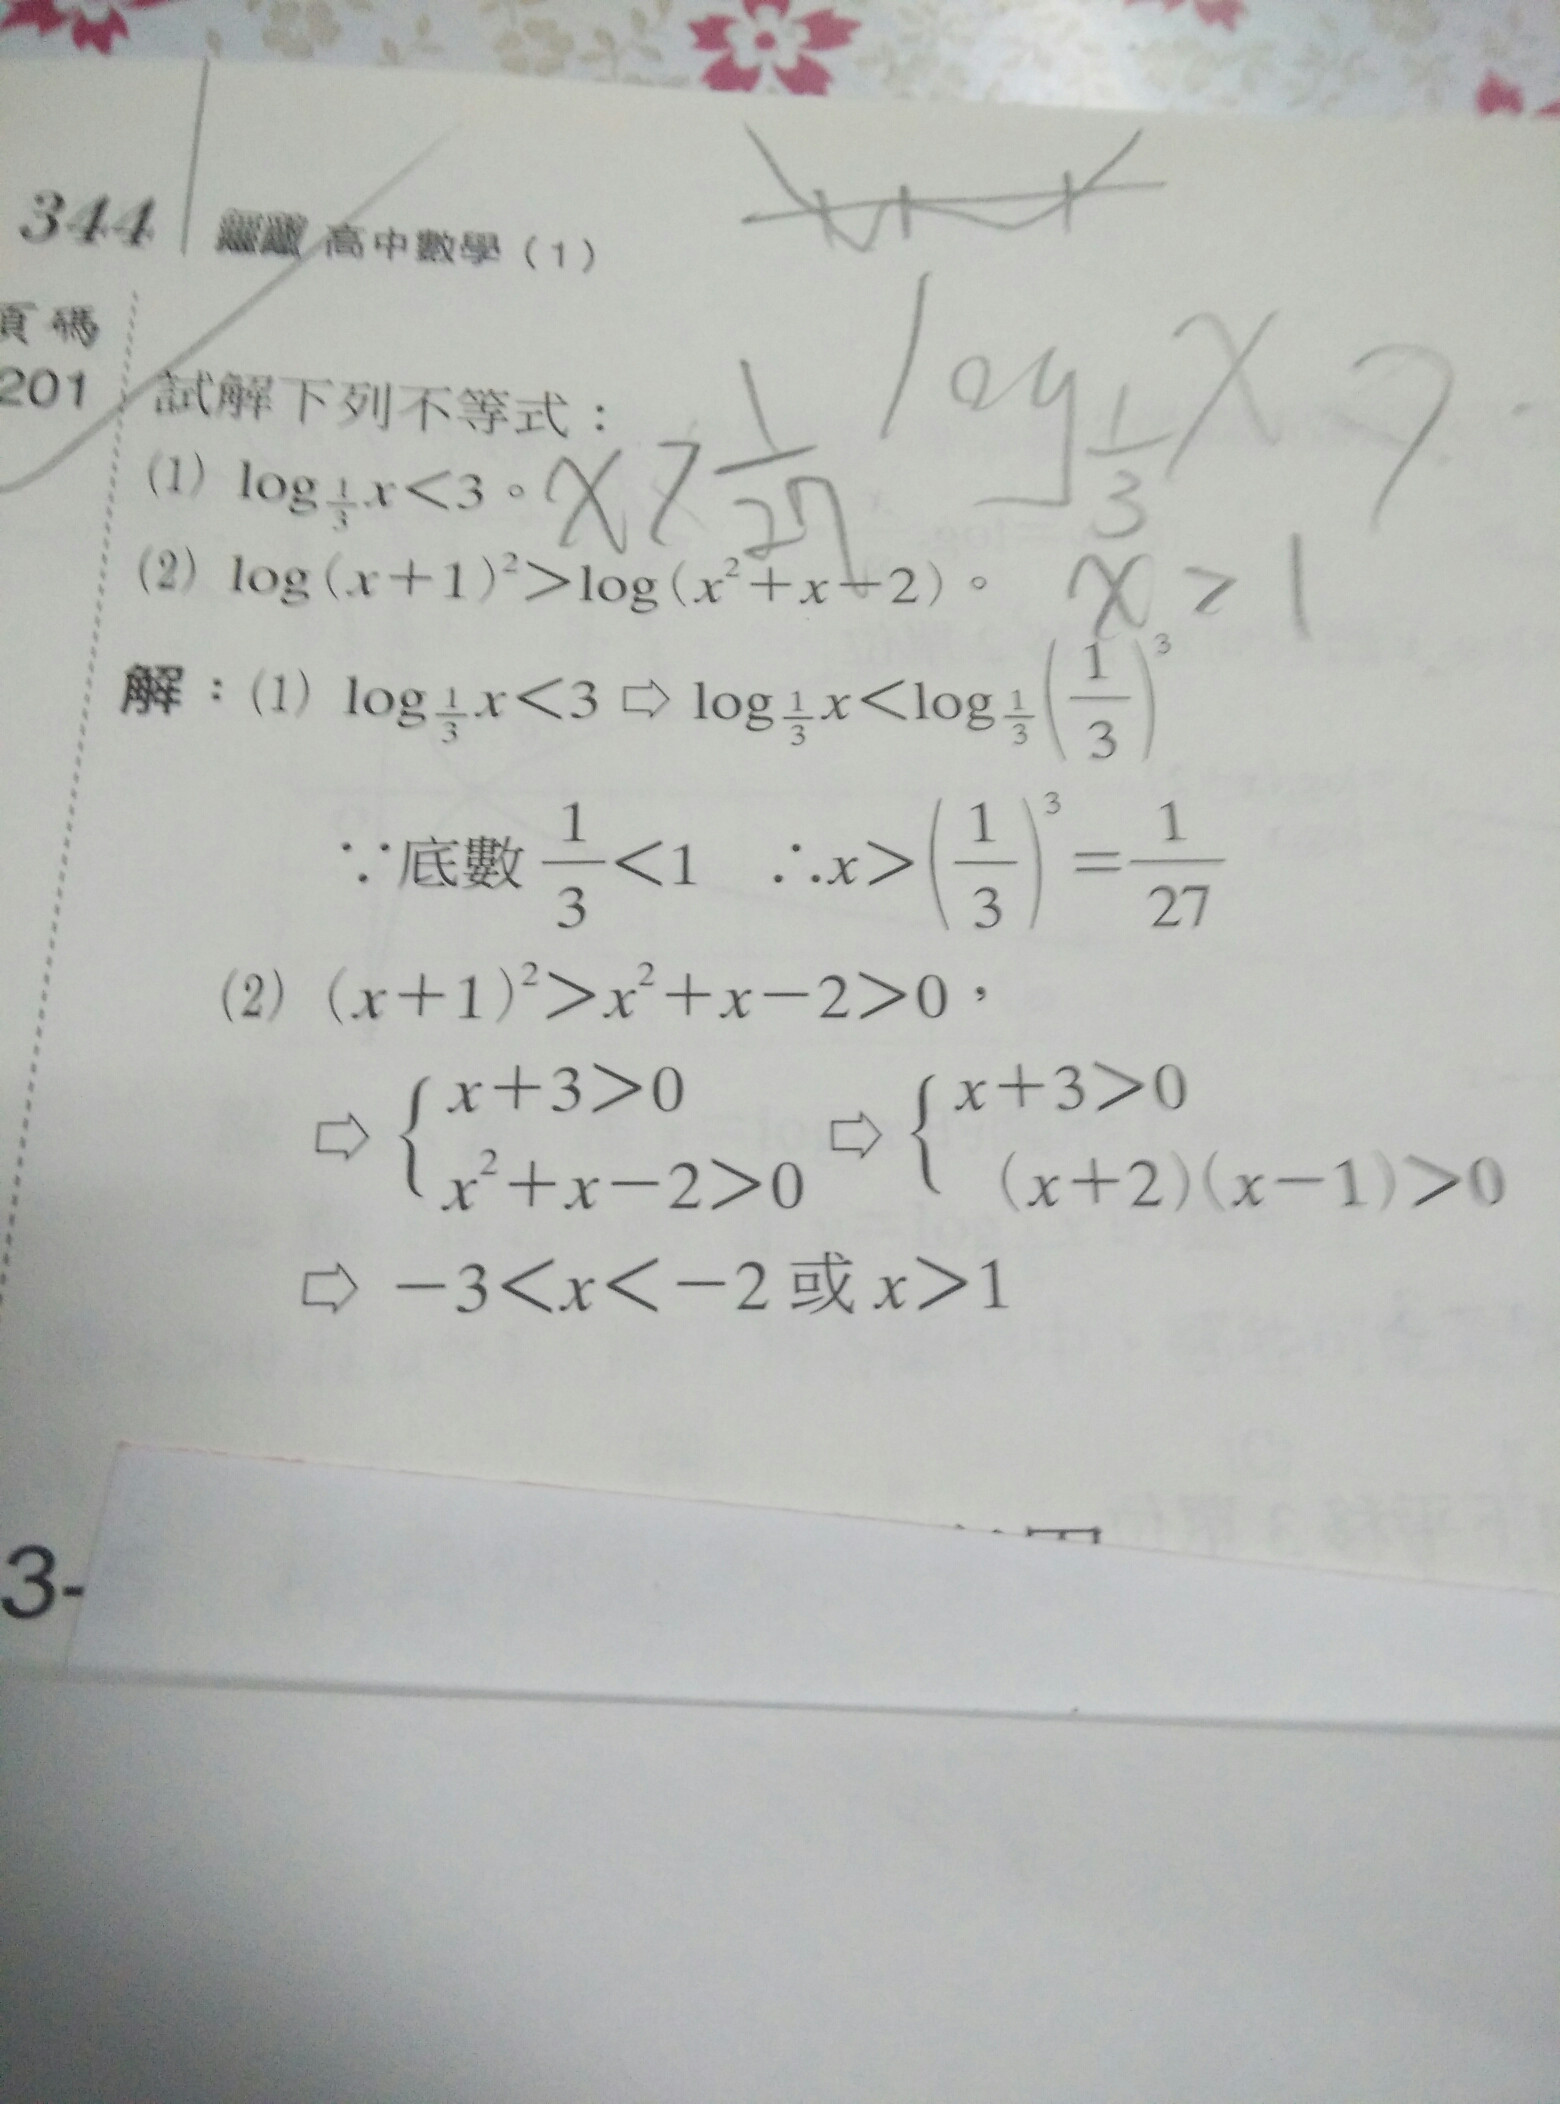 344 高中數學(1)
頁碼
201
試解下列不等式：
(1) log_{1/3} x<3。 x>1/27 log_{1/3} x >
(2) log(x+1)²>log(x²+x−2)。 x>1
解：(1) log_{1/3} x<3 ⇨ log_{1/3} x<log_{1/3} (1/3)³
∵底數 1/3<1 ∴x>(1/3)³=1/27
(2) (x+1)²>x²+x−2>0，
⇨ { x+3>0 x²+x−2>0 ⇨ { x+3>0 (x+2)(x−1)>0
⇨ −3<x<−2 或 x>1
3-